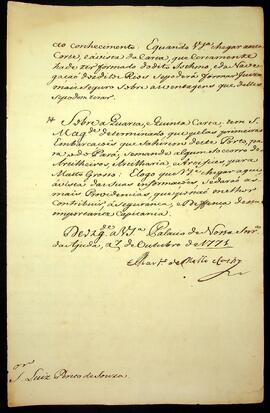 ao conhecimento. E quando V. S.ª chegar a esta
Corte, e á vista da Carta, que certamente
hade ter formado do dito
gaçaõ dos ditos Rios se poderá formar Juizo
mais seguro sobre as ventagens que delles
se podem tirar.
Sobre a Quarta, e Quinta Carta, tem S.
Mag.de determinado, que pelas primeiras
Embarcações que sahirem deste Porto, pa-
ra o do Pará, se mande algum socorro de
Artilheiros, Artilharia, e Petrechos, para
Matto Grosso: E logo que V. S.ª chegar aqui
á vista das suas informações, se daraõ as
mais Providencias, que possaõ melhor
contribuir, á segurança, e Deffença dessa
importante Capitania.
Deos g.de a V. S.ª Palacio de Nossa Snr.ª
da Ajuda, a 7 de Outubro de 1771
Mart.º de Mello e Castro
S.r Luiz Pinto de Souza